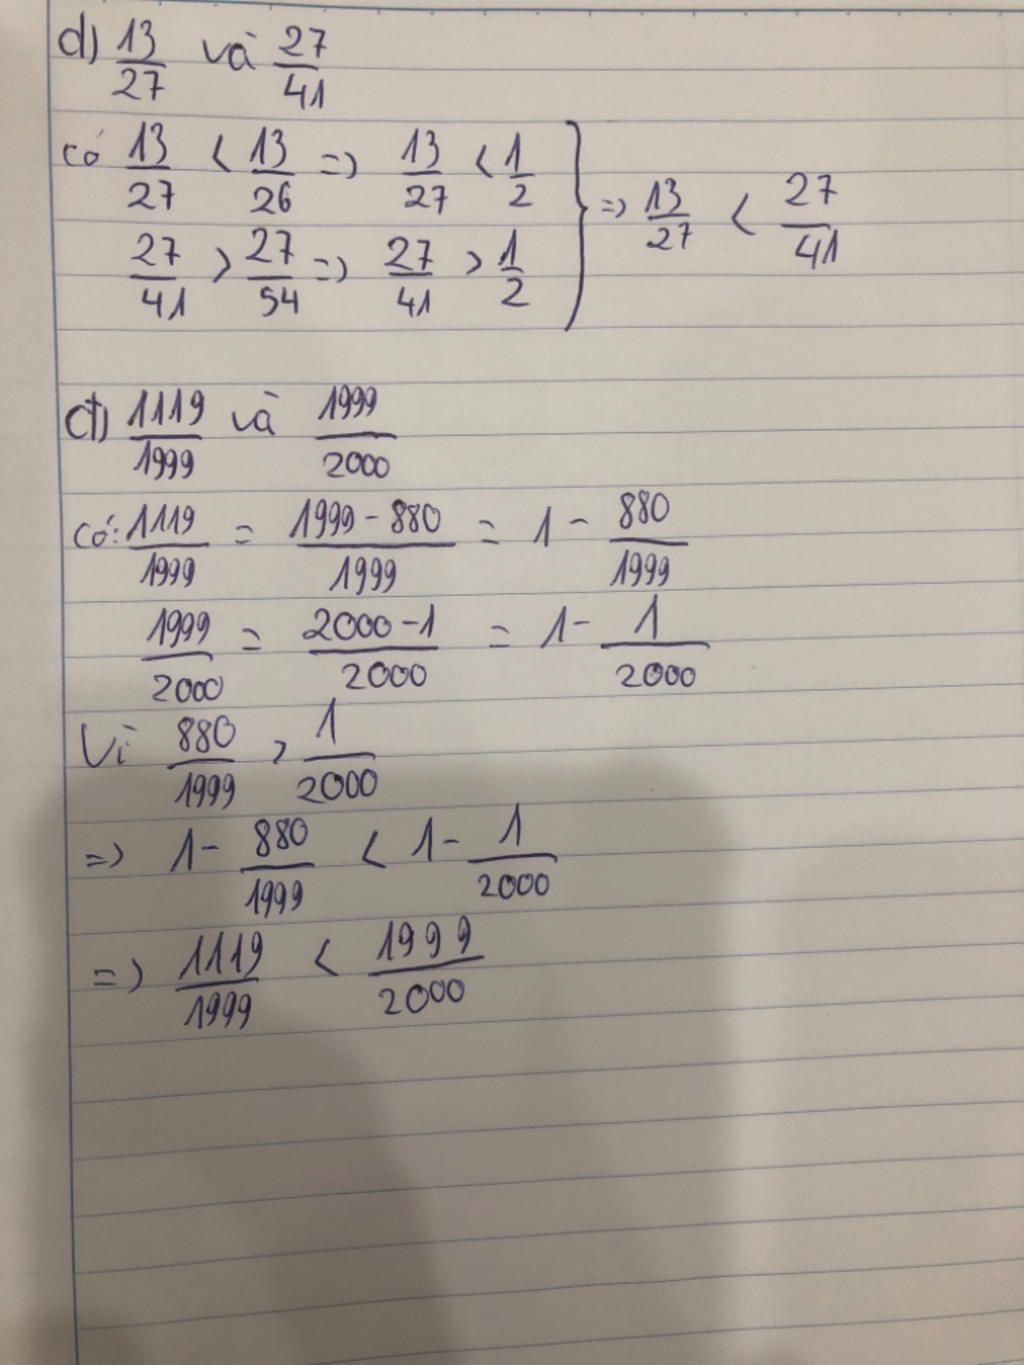 d) 13/27 và 27/41
có 13/27 < 13/26 => 13/27 < 1/2
27/41 > 27/54 => 27/41 > 1/2 } => 13/27 < 27/41
đ) 1119/1999 và 1999/2000
có: 1119/1999 = 1999 - 880/1999 = 1 - 880/1999
1999/2000 = 2000 - 1/2000 = 1 - 1/2000
Vì 880/1999 > 1/2000
=> 1 - 880/1999 < 1 - 1/2000
=> 1119/1999 < 1999/2000